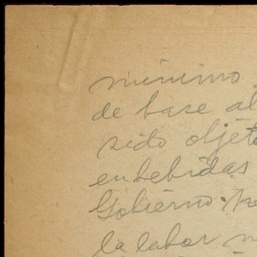 mínimo
de base al
sido objeto
enbebidas
Gobierno
la labor